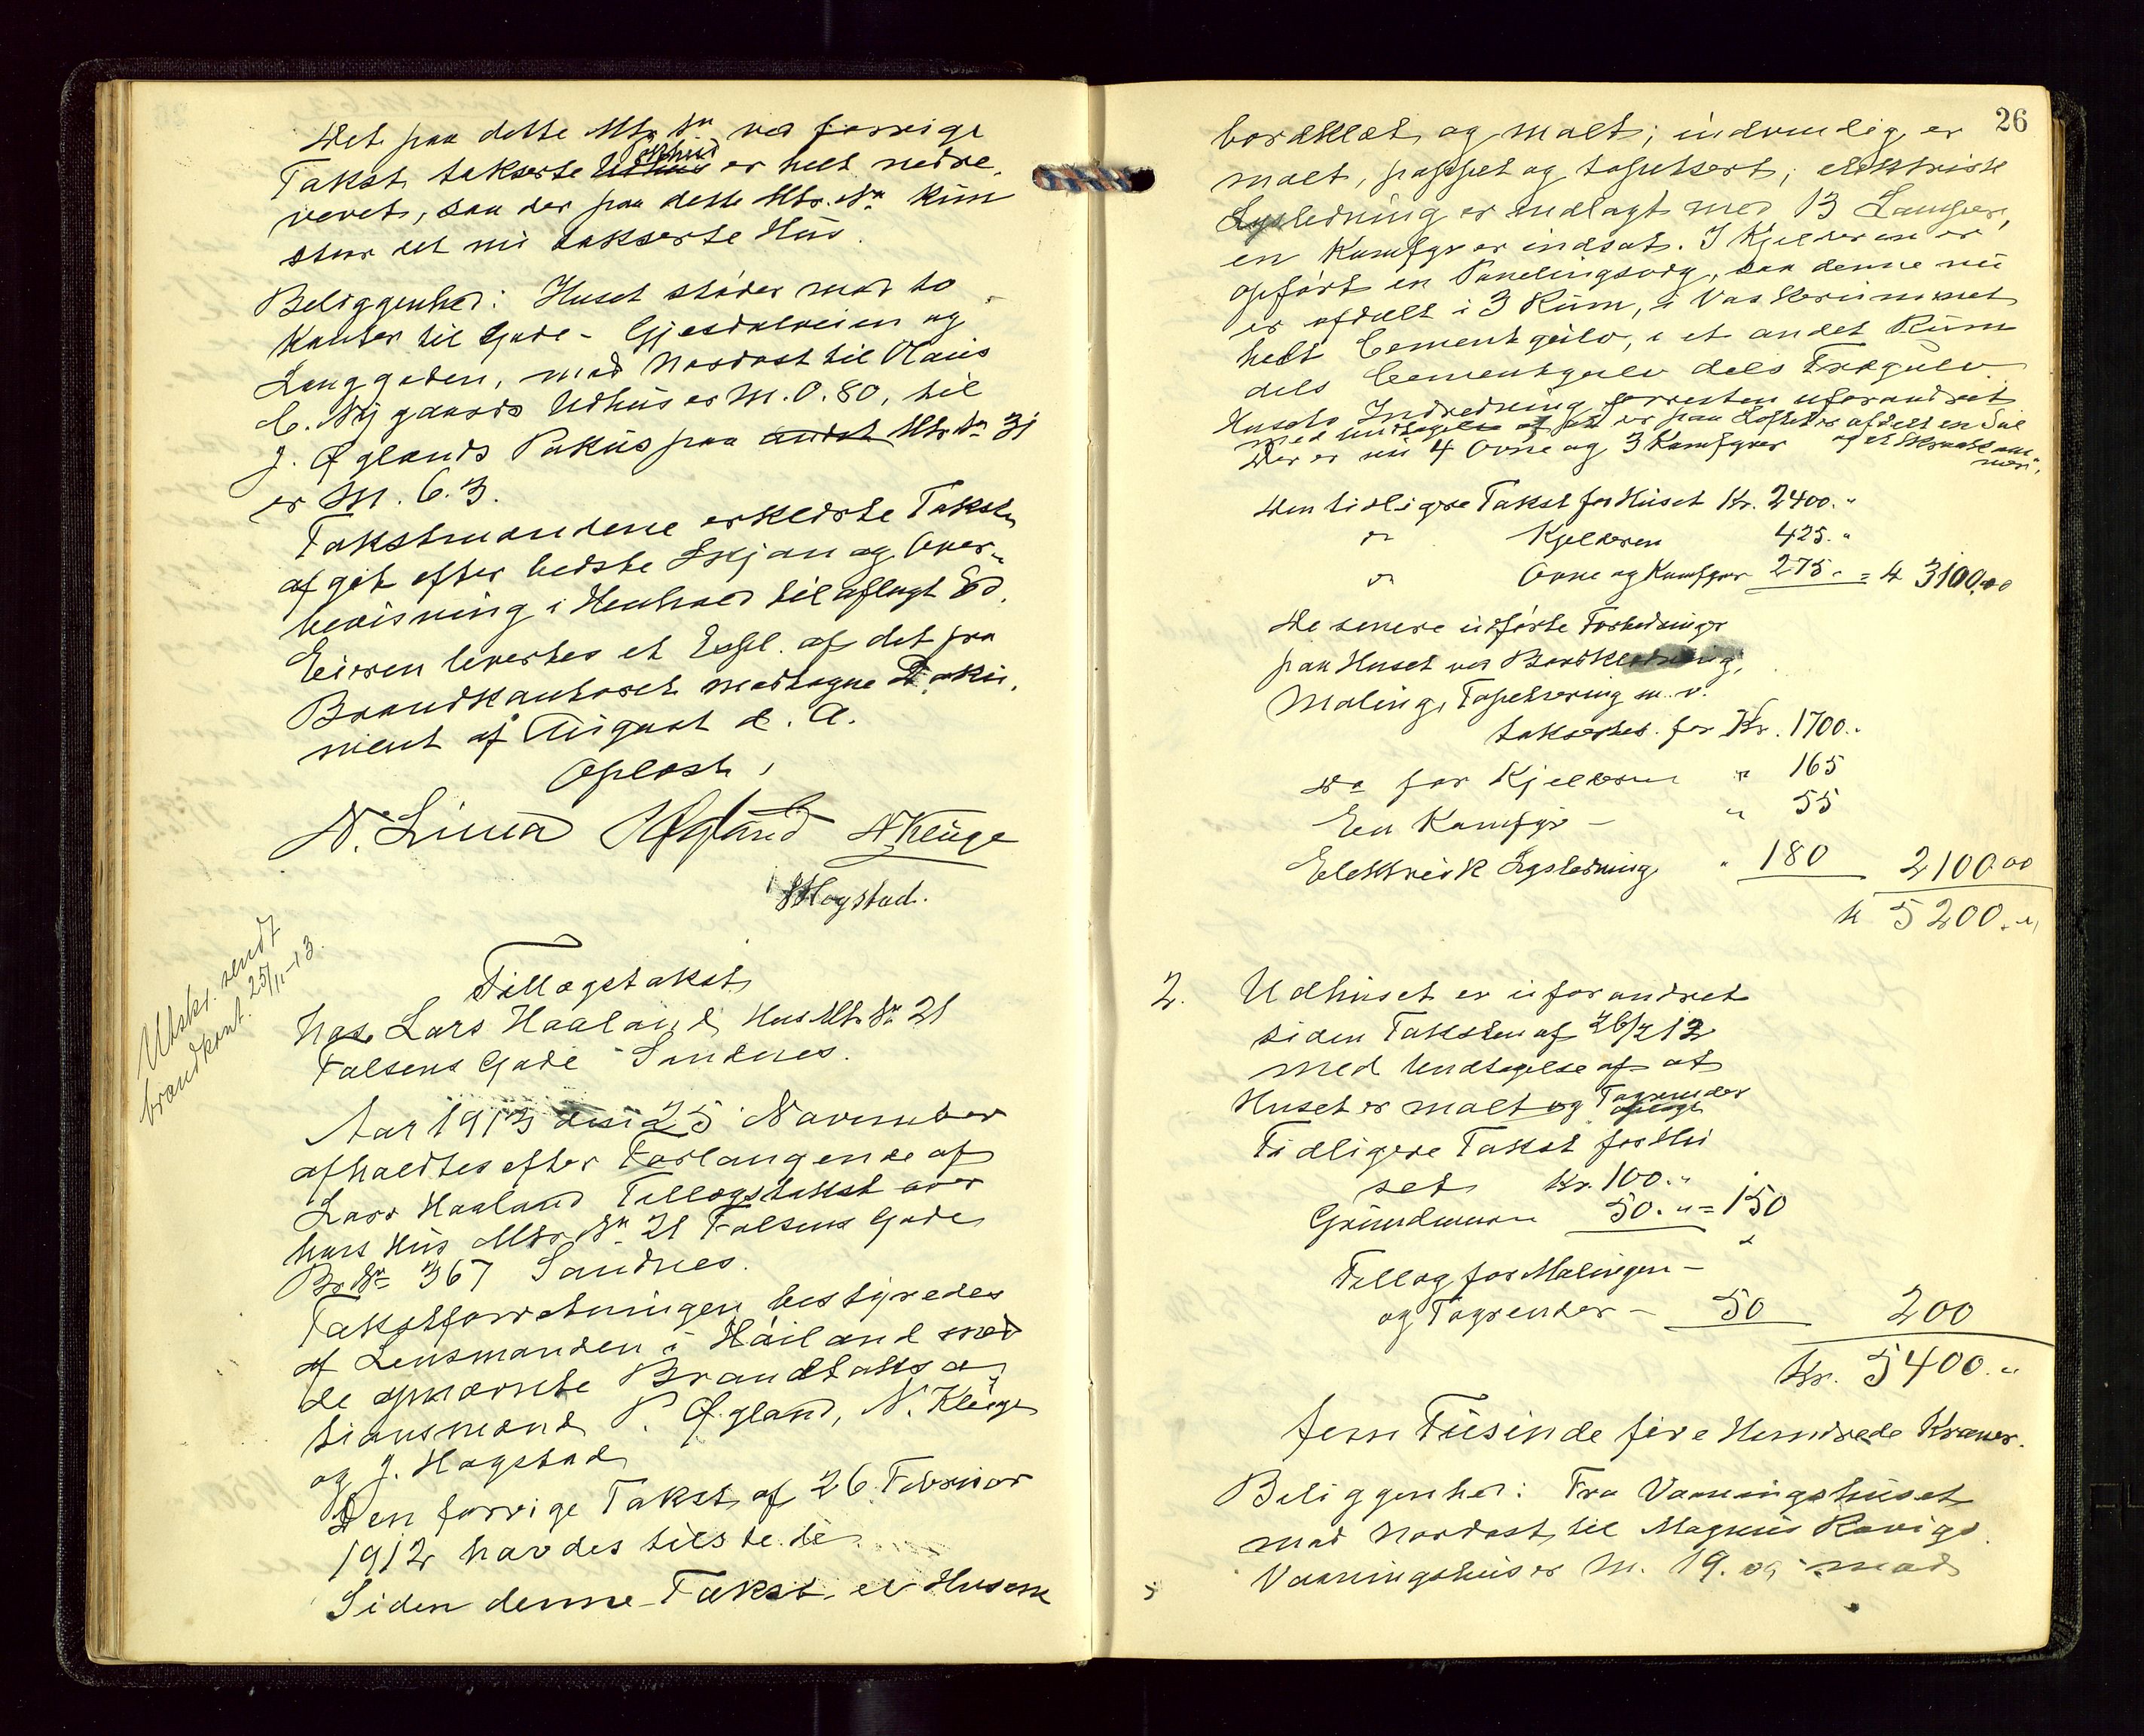 Det paa dette Mtr. Nr ved forrige
Takst takserte Udhus er helt nedre-
vevet, saa der paa dette Mtr. Nr kun
staar det nu takserte Hus.
Beliggenhed: Huset støder mod to
Kanter til Gade - Gjesdalveien og
Langgaden, mod Nordost til Olaus
C. Nygaards Udhus er M. 0.80, til
J. Øglands Pakhus paa andet Mtr. Nr 31
er M. 6.3.
Takstmændene erklærte Taksten
afgit efter bedste Skjøn og Over-
bevisning i Henhold til aflagt Ed.
Eieren levertes et Expl. af det fra
Brandkontoret modtagne Doku-
ment af August d. A.
Oplæst,
N. Lima Øgland N. Kluge
J Hogstad.
Utskr. sendt
brandkont. 25/11-13.
Tillægstakst
hos Lars Haaland, Hus Mtr. Nr 21
Falsens Gade Sandnes.
Aar 1913 den 25 November
afholdtes efter Forlangende af
Lars Haaland Tillægstakst over
hans Hus Mtr. Nr. 21 Falsens Gade
Br. Nr. 367 Sandnes.
Takstforretningen bestyredes
af Lensmanden i Høiland med
de opnævnte Brandtaksa-
tionsmænd P. Øgland, N. Kluge
og J. Hogstad
Den forrige Takst af 26 Februar
1912 havdes tilstede.
Siden denne Takst er Husene
26
bordklæt og malt; indvendig er
malt, pappet og tapetsert; elektrisk
Lysledning er indlagt med 13 Lamper,
en Komfyr er indsat. I Kjelderen er
opført en Panelingsvæg, saa denne nu
er afdelt i 3 Rum, i Vaskerummet
helt Cementgulv, i et andet Rum
dels Cementgulv dels Trægulv
Husets Indredning forresten uforandret
med undtagelse af at er paa Loftet er afdelt en Sal
Der er nu 4 Ovne og 3 Komfyrer og et Skraakam-
mer.
Den tidligere Takst for Huset Kr. 2400.-
do Kjelderen 425.-
do Ovne og Komfyrer 275.- = Kr 3100.00
De senere udførte Forbedringer
paa Huset ved Bordklædning,
Maling, Tapetsering m. v.
taksertes for Kr. 1700.-
Do for Kjelderen " 165
En Komfyr - " 55
Elektrisk Lysledning " 180 2100.00
Kr 5200.-
2. Udhuset er uforandret
siden Taksten af 26/2 12
med Undtagelse af at
Huset er malt og Tagrender
Tidligere Takst for Hu
set Kr. 100.-
Grundmuren 50.- = 150
Tillæg for Malingen -
og Tagrender - 50 200
Kr. 5400.-
fem Tusinde fire Hundrede Kroner.
Beliggenhed: Fra Vaaningshuset
mod Nordost til Magnus Ravigs
Vaaningshus er M. 19. og mod